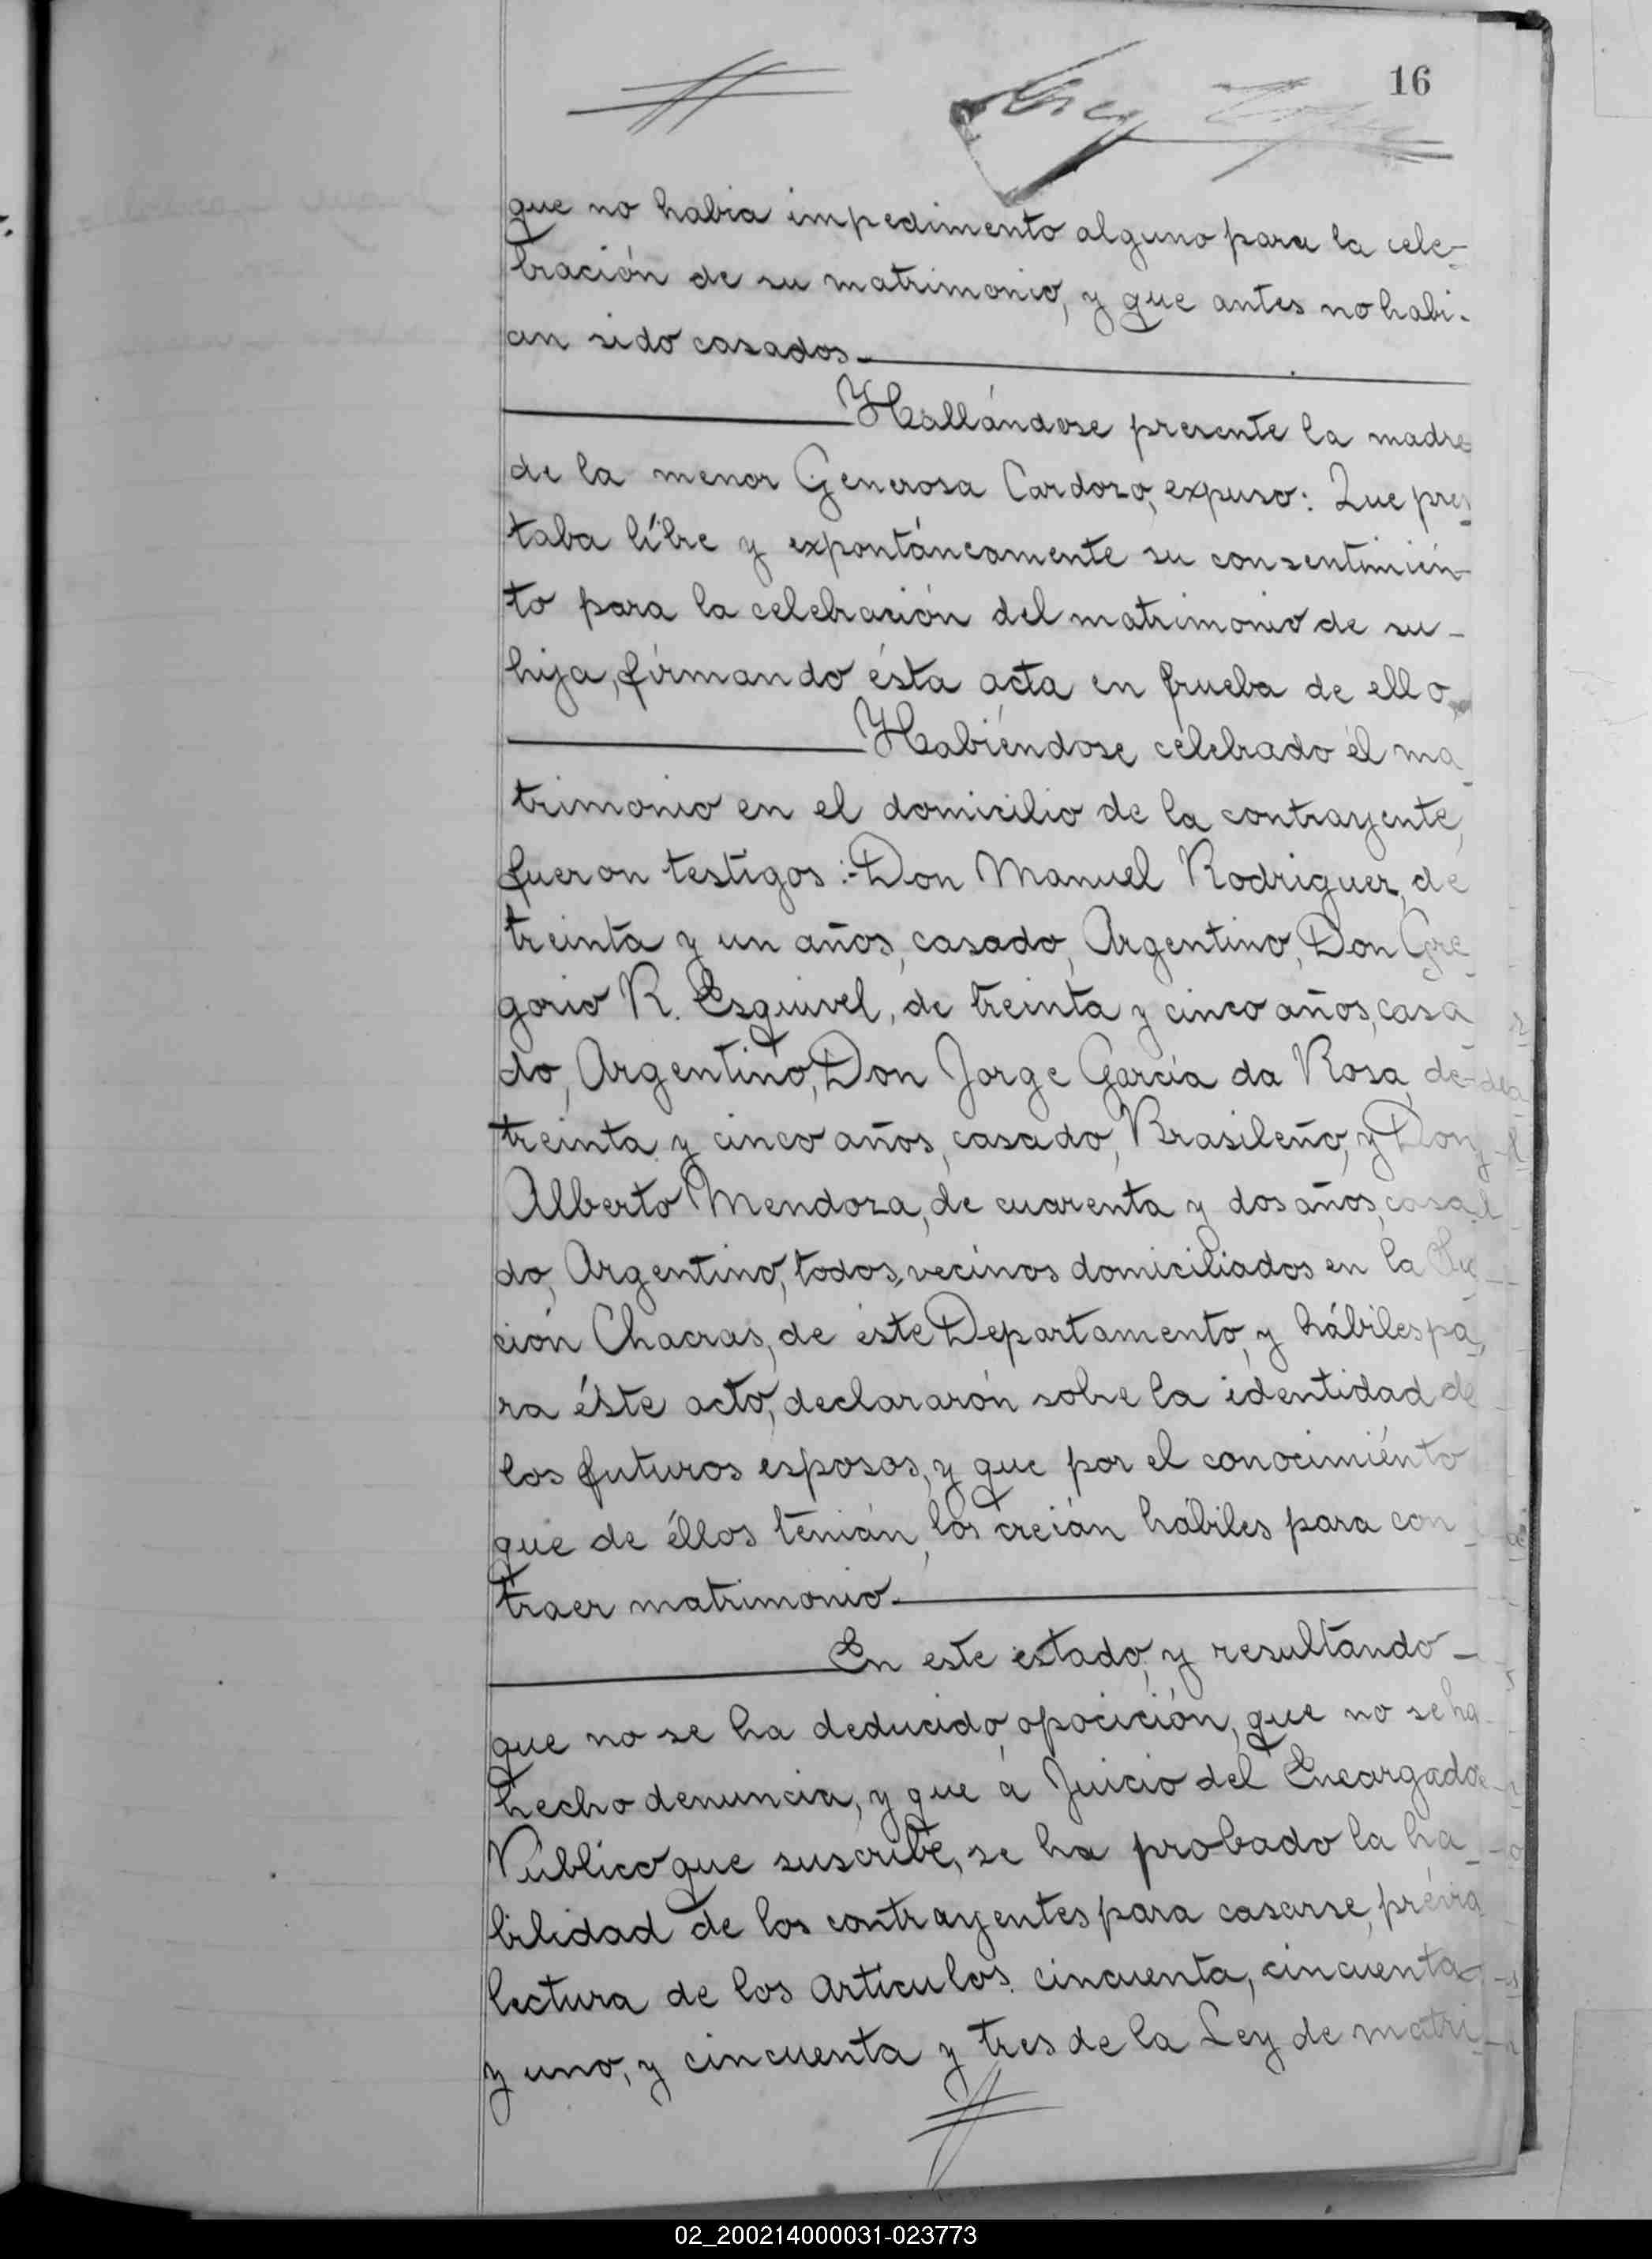 16
que no habia impedimento alguno para la cele-
bración de su matrimonio, y que antes no habi-
an sido casados.
Hallándose presente la madre
de la menor Generosa Cardozo, expuso: Que pres
taba líbre y expontáneamente su consentimién
to para la celebración del matrimonio de su-
hija, firmando ésta acta en prueba de ello,
Habiéndose celebrado él ma
trimonio en el domicilio de la contrayente,
fueron testigos:-Don Manuel Rodriguez, de
treinta y un años, casado, Argentino, Don Gre
gorio R. Esquivel, de treinta y cinco años, casa
do, Argentino, Don Jorge García da Rosa, de-
treinta y cinco años, casado, Brasileño, y Don
Alberto Mendoza, de cuarenta y dos años, casa
do, Argentino, todos, vecinos domiciliados en la
ción Chacras, de éste Departamento, y hábiles pa
ra éste acto, declararón sobre la identidad de
los futuros esposos, y que por el conocimiénto
que de éllos tenián, los creián hábiles para con
traer matrimonio.
En este estado, y resultando-
que no se ha deducido, opocición, que no se ha
hecho denuncia, y que á Juicio del Encargado
Público que suscribe, se ha probado la ha
bilidad de los contrayentes para casarse, prévia
lectura de los artículos cincuenta, cincuenta
y uno, y cincuenta y tres de la Ley de matri
02_200214000031-023773